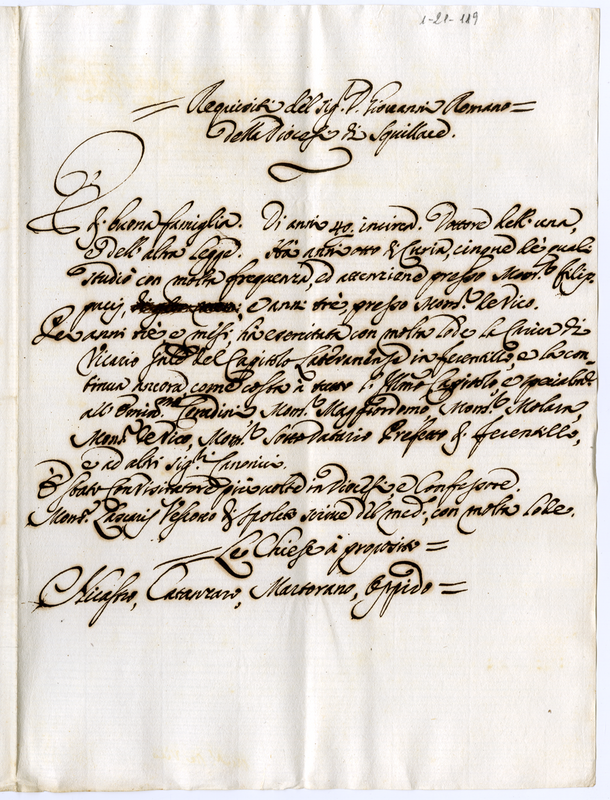 1-21-119
Requisiti del Sig.r D. Giovanni Romano =
della Diocesi di Squillace.
È di buona famiglia. Di anni 40. incirca. Dottore dell'una,
e dell'altra legge. Hà anni otto di Curia, cinque de quali
studiò con molta frequenza, ed attenzione presso Mons.r Filip-
pucci, e anni trè, presso Mons.r de Vico.
Per anni trè e mesi, hà esercitata con molta lode la Carica di
Vicario Gnle del Capitolo Lateranense in Ferentillo, e la con-
tinua ancora come costa à tutto l'Illmo Capitolo, e
all' Emin.mo Corradini Mons.r Maggiordomo, Mons.r Molara,
Mons.r de Vico, Mons.r Sotto Datario Prefetto di Ferentillo,
e ad altri Sig.ri Canonici.
È stato Convisitatore più volte in Diocesi, e Confessore.
Mons.r Lascaris Vescovo di Spoleto scrive del med.o, con molta lode.
Le Chiese à proposito =
Nicastro, Catanzaro, Martorano, Oppido =